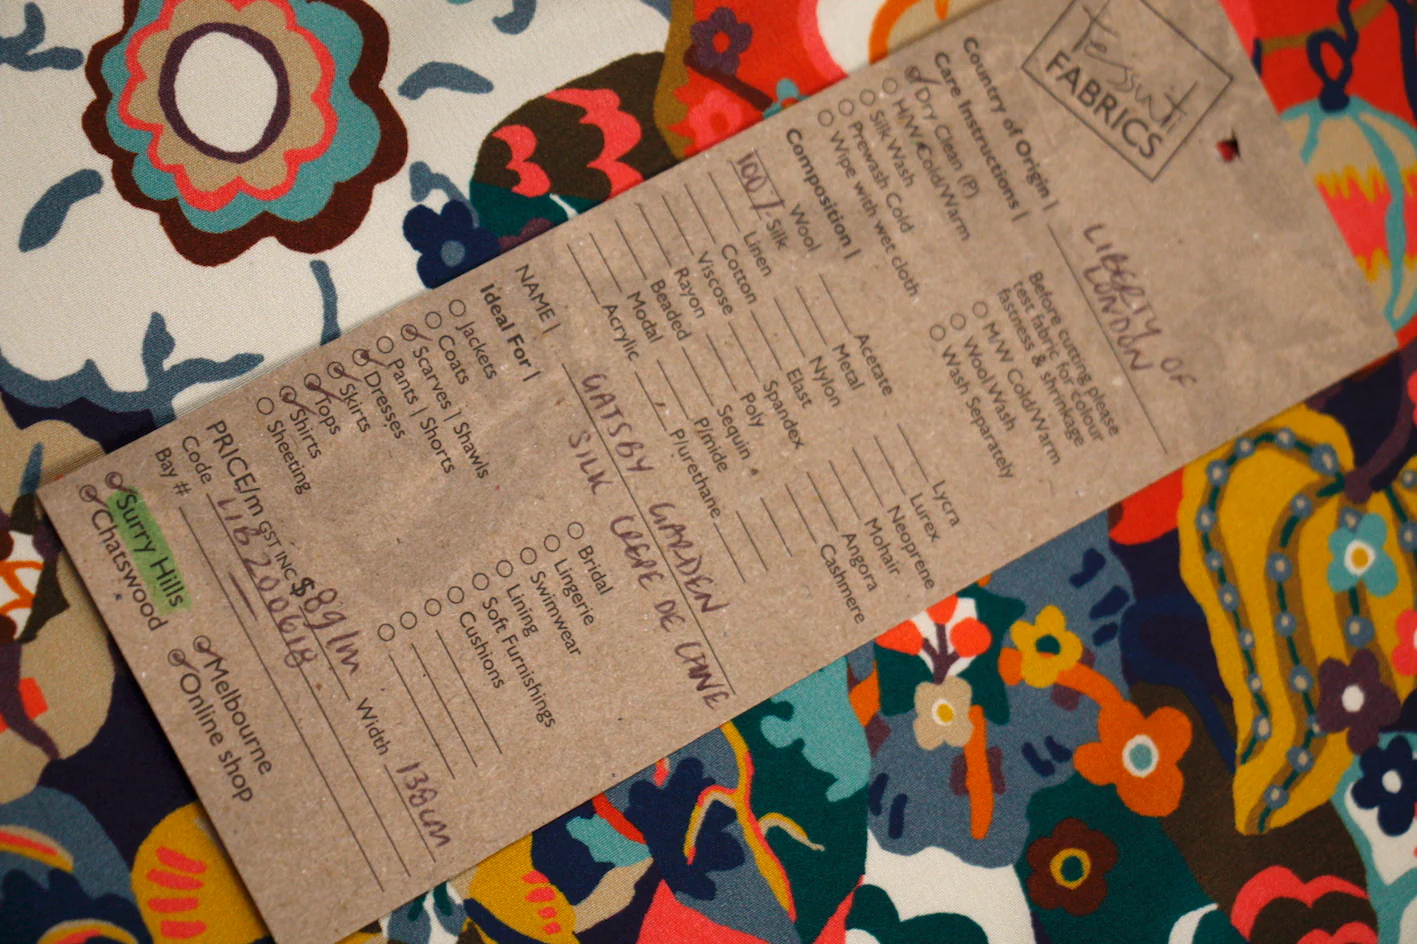 Tessuti
FABRICS
LIBERTY OF
LONDON
Country of Origin |
Care Instructions |
Dry Clean (P)
H/W Cold/Warm
Silk Wash
Prewash Cold
Wipe with wet cloth
Before cutting please
test fabric for colour
fastness & shrinkage
M/W Cold/Warm
Wool Wash
Wash Separately
Composition |
Wool
100% Silk
Linen
Cotton
Viscose
Rayon
Beaded
Modal
Acrylic
Acetate
Metal
Nylon
Elast
Spandex
Poly
Sequin
P/mide
P/urethane
Lycra
Lurex
Neoprene
Mohair
Angora
Cashmere
NAME | GATSBY GARDEN
SILK CREPE DE CHINE
Ideal For |
Jackets
Coats
Scarves | Shawls
Pants | Shorts
Dresses
Skirts
Tops
Shirts
Sheeting
Bridal
Lingerie
Swimwear
Lining
Soft Furnishings
Cushions
PRICE/m GST INC $89/m Width 138cm
Code LIB200618
Bay #
Surry Hills
Chatswood
Melbourne
Online shop